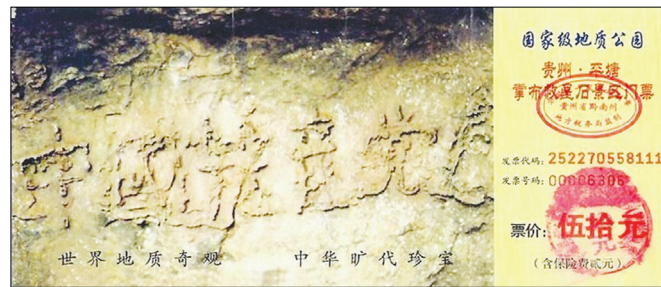 中國共産党亡
世界地质奇观
中华旷代珍宝
国家级地质公园
贵州·平塘
掌布救星石景区门票
贵州省黔南州
地方税务局监制
发票代码: 252270558111
发票号码: 00006306
票价: 伍拾元
(含保险费贰元)